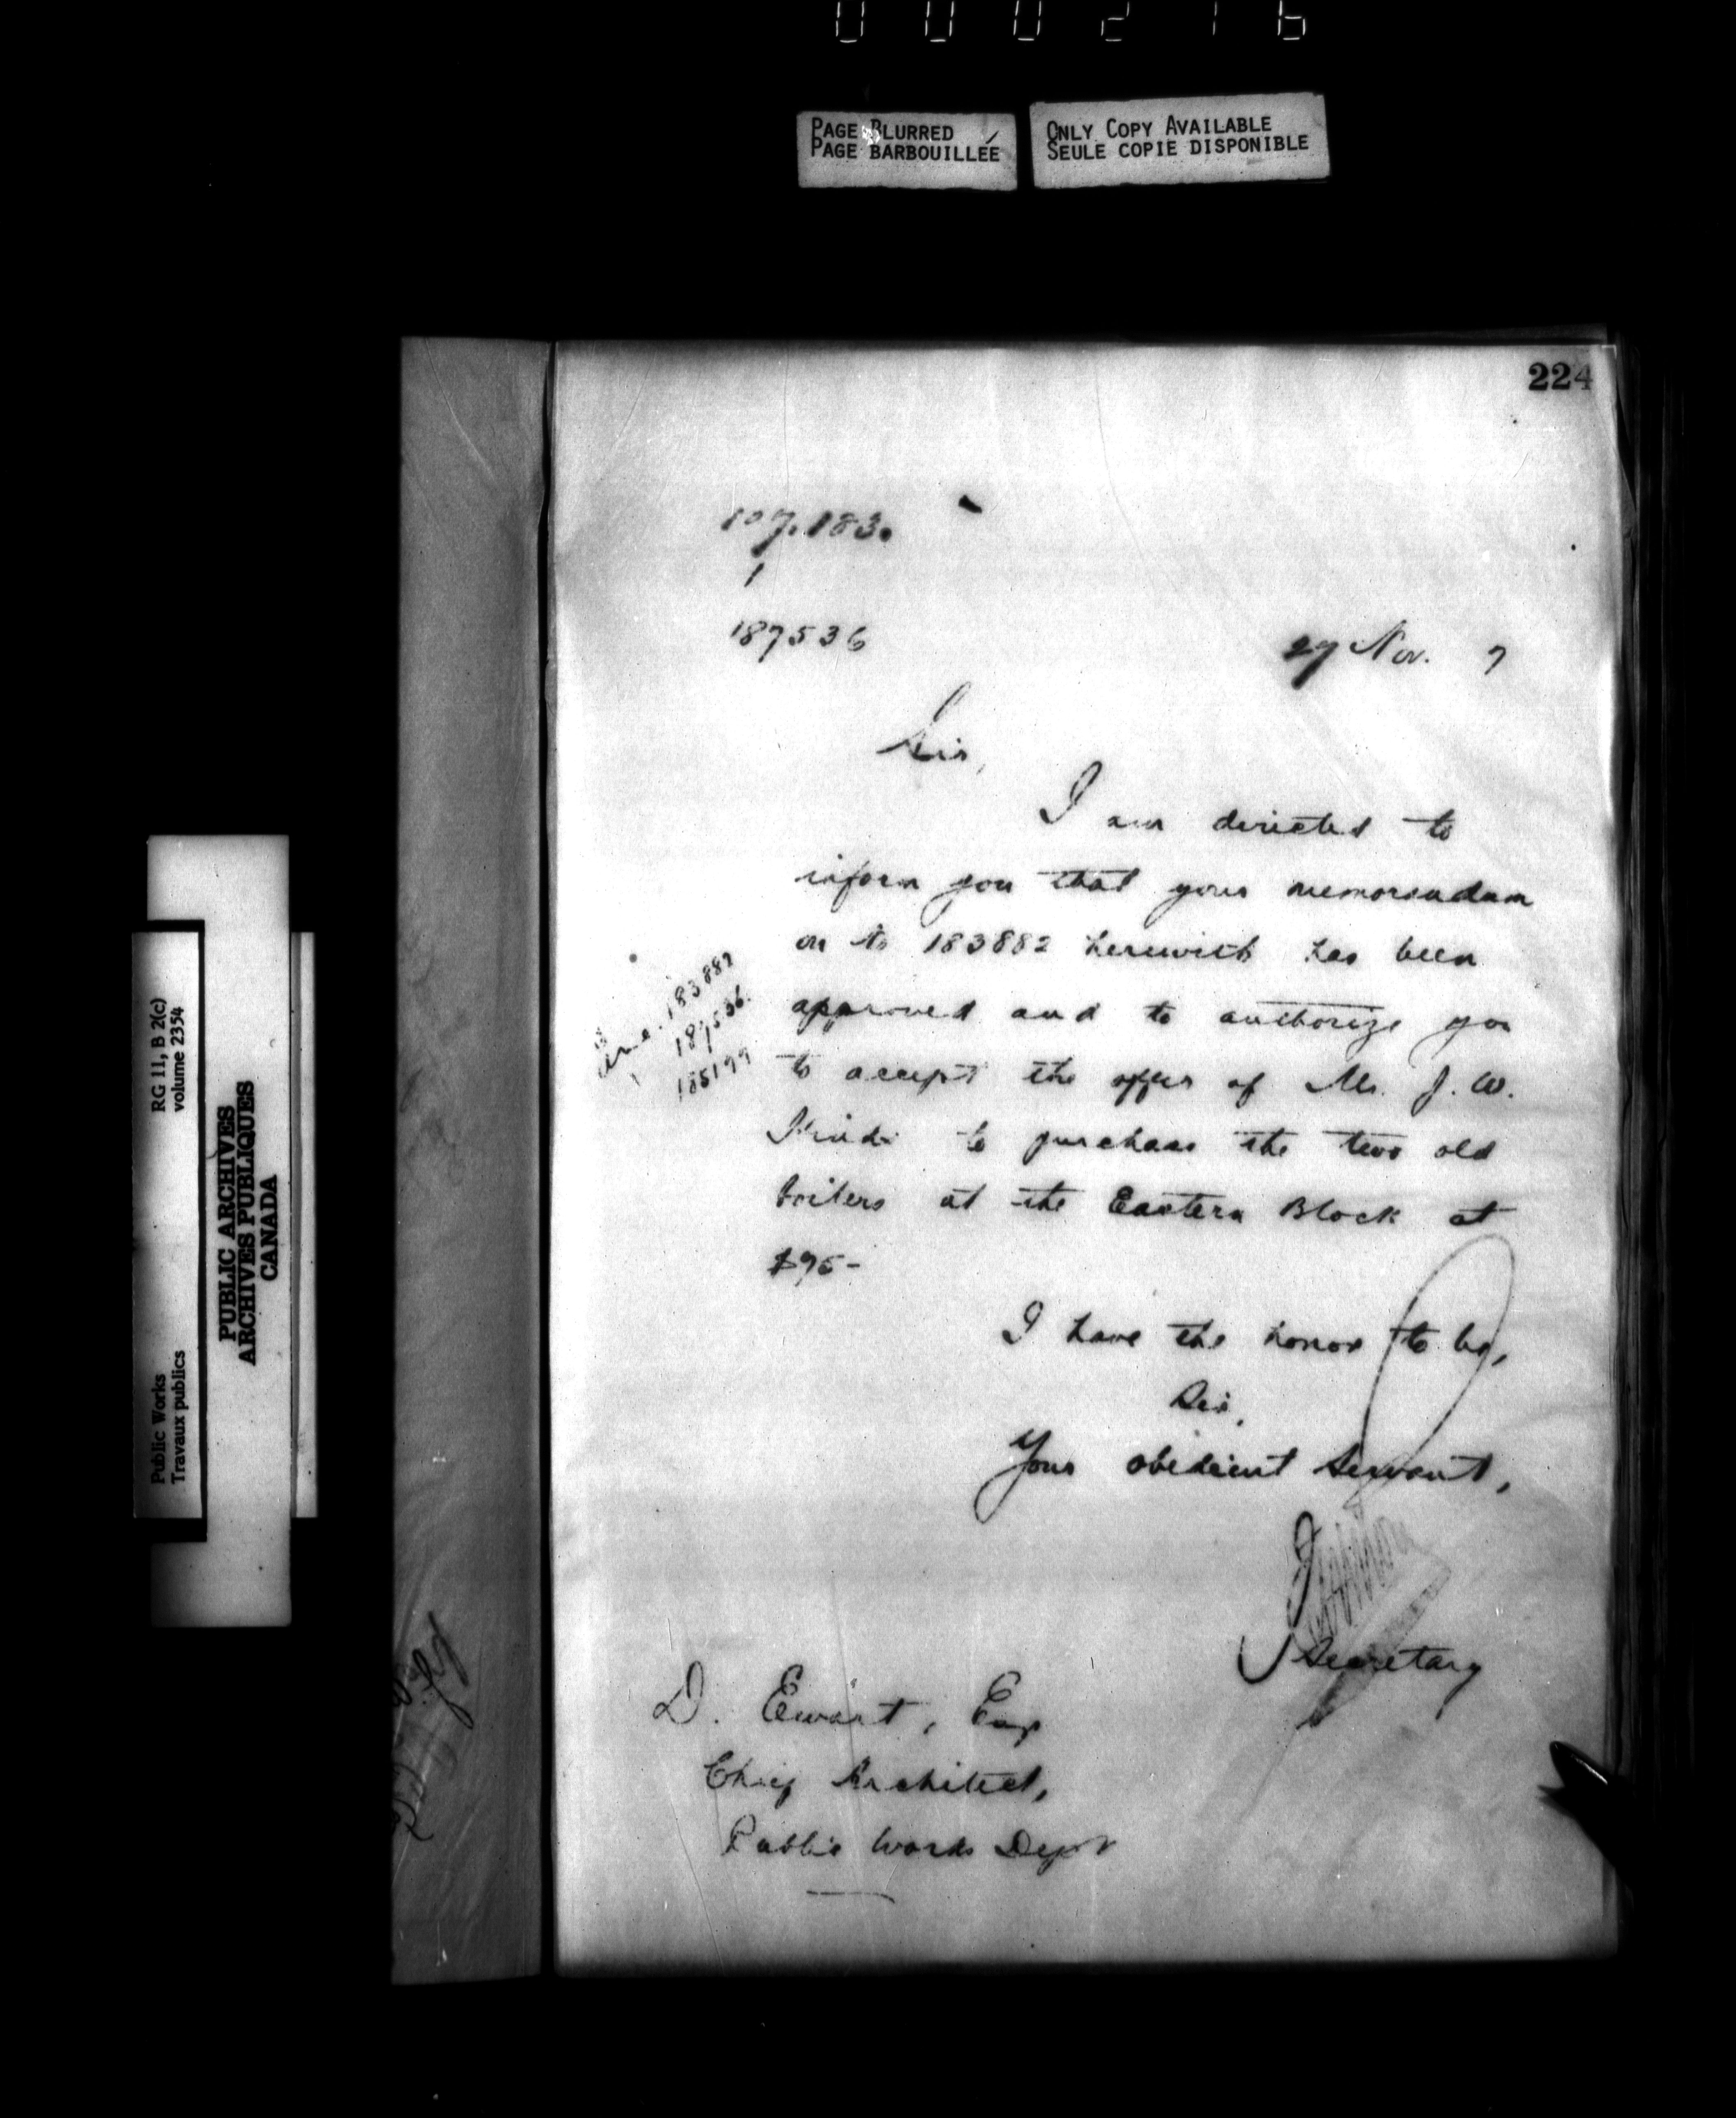 000216
PAGE BLURRED
PAGE BARBOUILLÉE
ONLY COPY AVAILABLE
SEULE COPIE DISPONIBLE
224
107.183.
1
187536
27 Nov. 7
Sir,
I am directed to
inform you that your memorandum
on to 183882 herewith has been
approved and to authorize you
to accept the offer of Mr. J. W.
to purchase the two old
boilers at the Eastern Block at
$95-
I have the honor to be,
Sir,
Your obedient servant,
Secretary
D. Ewart, Esq
Chief Architect,
Public Works Dept
187536.
RG 11, B 2(c)
volume 2354
Public Works
Travaux publics
PUBLIC ARCHIVES
ARCHIVES PUBLIQUES
CANADA